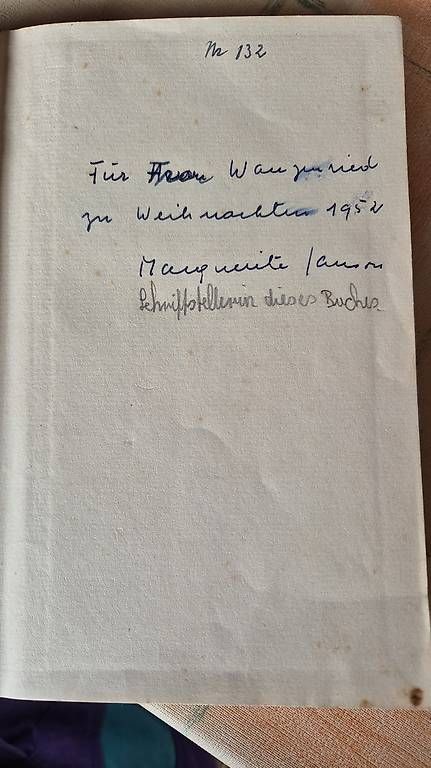 Nr 132
Für Frau Wanzenried
zu Weihnachten 1952
Marguerite Janson
Schriftstellerin dieses Buches